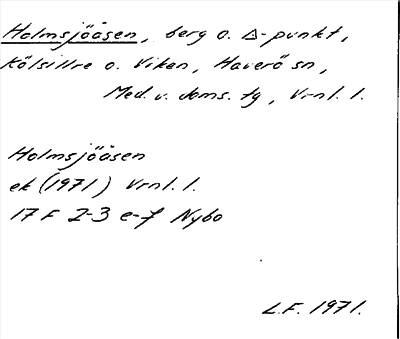 Holmsjöåsen, berg o. △-punkt,
Kölsillre o. Viken, Haverö sn,
Med. v. doms. tg, Vrnl. l.
Holmsjöåsen
ek (1971) Vrnl. l.
17 F 2-3 e-f Nybo
L.F. 1971.